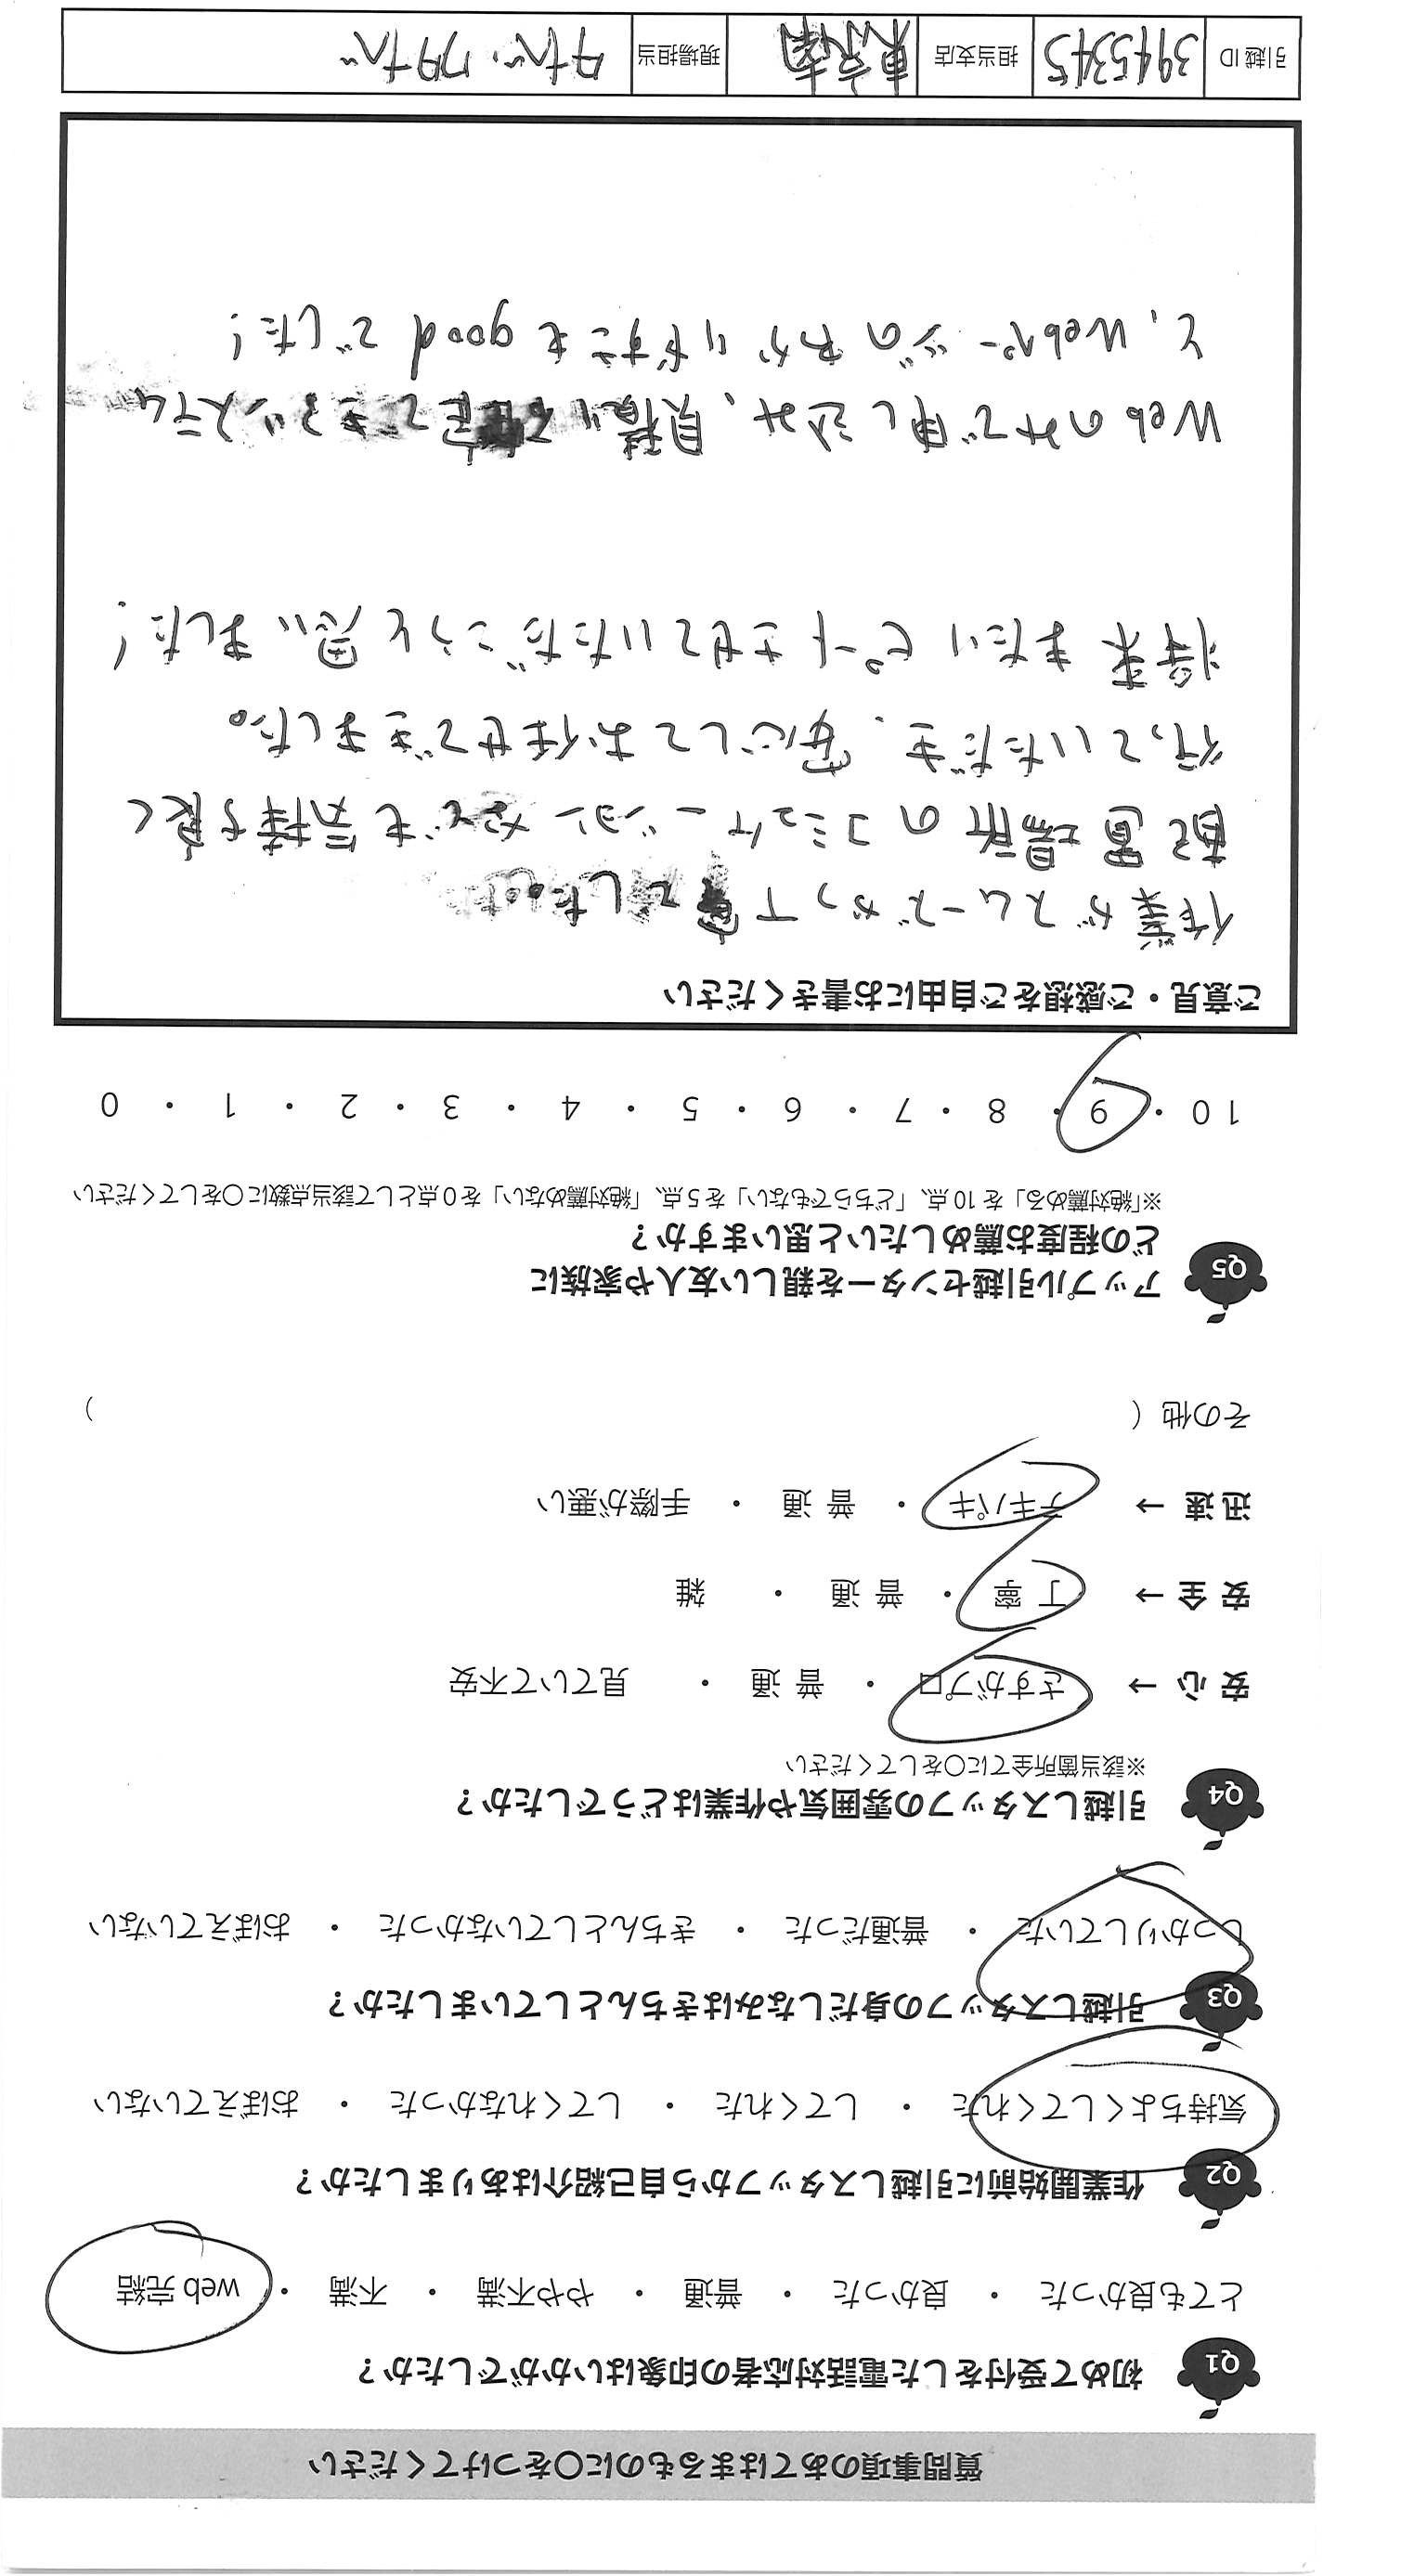 質問事項のあてはまるものに〇をつけてください
Q1 初めて受付をした電話対応者の印象はいかがでしたか？
とても良かった ・ 良かった ・ 普通 ・ やや不満 ・ 不満 ・ web 完結
Q2 作業開始前に引越しスタッフから自己紹介はありましたか？
気持ちよくしてくれた ・ してくれた ・ してくれなかった ・ おぼえていない
Q3 引越しスタッフの身だしなみはきちんとしていましたか？
しっかりしていた ・ 普通だった ・ きちんとしていなかった ・ おぼえていない
Q4 引越しスタッフの雰囲気や作業はどうでしたか？
※該当箇所全てに〇をしてください
安 心 → さすがプロ ・ 普 通 ・ 見ていて不安
安 全 → 丁 寧 ・ 普 通 ・ 雑
迅 速 → テキパキ ・ 普 通 ・ 手際が悪い
その他（ ）
Q5 アップル引越センターを親しい友人や家族に
どの程度お薦めしたいと思いますか？
※「絶対薦める」を 10 点、「どちらでもない」を 5 点、「絶対薦めない」を 0 点として該当点数に〇をしてください
10 ・ 9 ・ 8 ・ 7 ・ 6 ・ 5 ・ 4 ・ 3 ・ 2 ・ 1 ・ 0
ご意見・ご感想をご自由にお書きください
作業がスムーズかつ丁寧でした。
配置場所のコミュケーションなども気持ち良く
行っていただき、安心してお任せできました。
将来またリピートさせていただこうと思いました！
Webのみで申し込み、見積り確定できるシステム
と、Webページのわかりやすさも good でした！
引越 ID 3945345 担当支店 東京南 現場担当